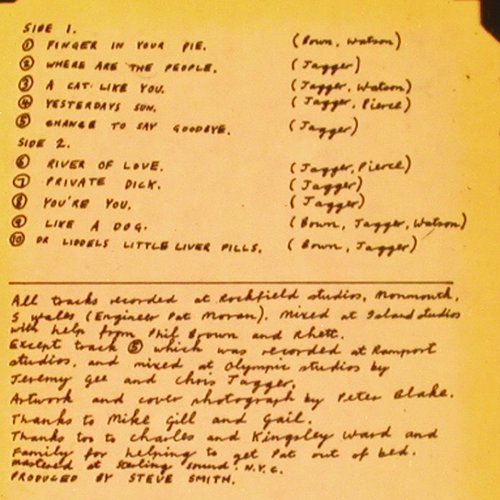 SIDE 1.
① FINGER IN YOUR PIE. (Bown, Watson)
② WHERE ARE THE PEOPLE. (Jagger)
③ A CAT LIKE YOU. (Jagger, Watson)
④ YESTERDAYS SUN. (Jagger, Pierce)
⑤ CHANGE TO SAY GOODBYE. (Jagger)
SIDE 2.
⑥ RIVER OF LOVE. (Jagger, Pierce)
⑦ PRIVATE DICK. (Jagger)
⑧ YOU'RE YOU. (Jagger)
⑨ LIKE A DOG. (Bown, Jagger, Watson)
⑩ DR LIDDELS LITTLE LIVER PILLS. (Bown, Jagger)
All tracks recorded at Rockfield studios, Monmouth,
S wales (Engineer Pat Moran). Mixed at Island studios
with help from Phil Brown and Rhett.
Except track ⑤ which was recorded at Ramport
studios, and mixed at Olympic studios by
Jeremy Gee and Chris Jagger.
Artwork and cover photograph by Peter Blake.
Thanks to Mike Gill and Gail.
Thanks too to Charles and Kingsley Ward and
Family for helping to get Pat out of bed.
mastered at Sterling Sound. N.Y.C.
PRODUCED BY STEVE SMITH.